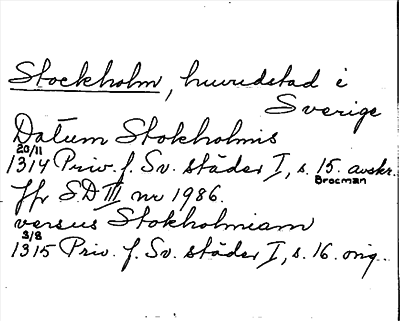 Stockholm, huvudstad i
Sverige
Datum Stokholmis
20/11
1314 Priv. f. Sv. städer I, s. 15. avskr.
Brocman
Jfr S.D III nr 1986.
versus Stokholmiam
3/8
1315 Priv. f. Sv. städer I, s. 16. orig.